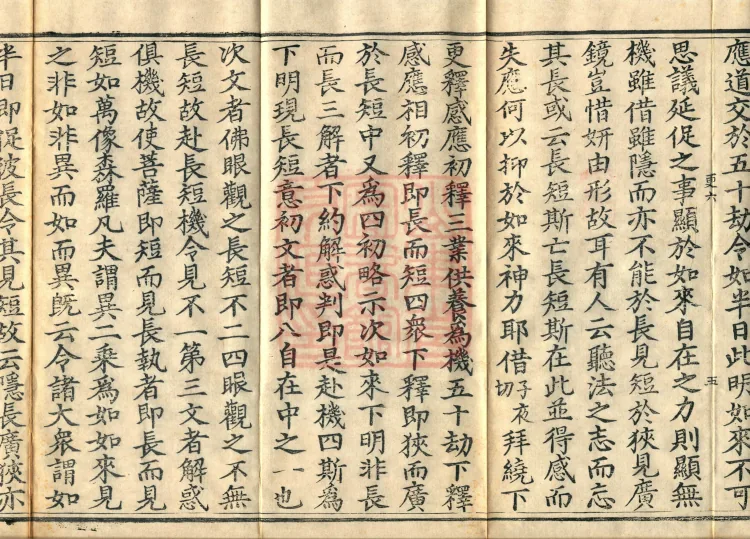 應道交於五十劫令如半日此明如來不可
思議延促之事顯於如來自在之力則顯無
機雖借雖隱而亦不能於長見短於狹見廣
鏡豈惜妍由形故耳有人云聽法之志而忘
其長或云長短斯亡長短斯在此並得感而
失應何以抑於如來神力耶借子夜切拜繞下
更釋感應初釋三業供養為機五十劫下釋
感應相初釋即長而短四衆下釋即狹而廣
於長短中又為四初略示次如來下明非長
而長三解者下約解惑判即是赴機四斯為
下明現長短意初文者即八自在中之一也
次文者佛眼觀之長短不二四眼觀之不無
長短故赴長短機令見不一第三文者解惑
俱機故使菩薩即短而見長執者即長而見
短如萬像森羅凡夫謂異二乘為如如來見
之非如非異而如而異既云令諸大衆謂如
半日即促彼長令其見短故云隱長廣狹亦
更六
五